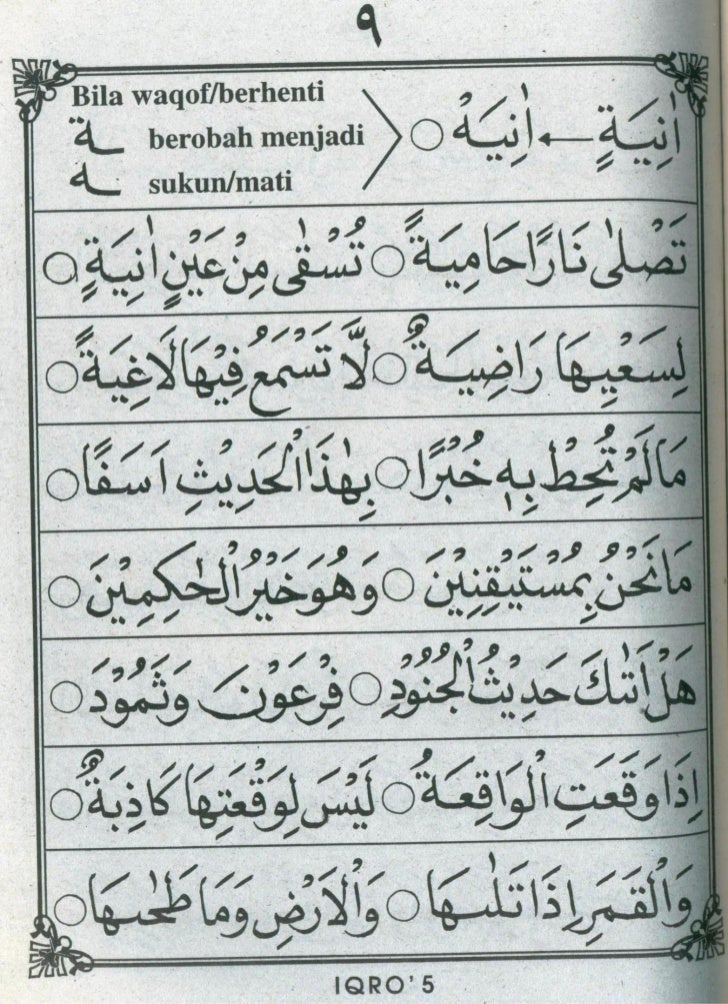 ٩
Bila waqof/berhenti
ـة berobah menjadi
ـه sukun/mati
اٰنِيَةٍ ← اٰنِيَهْ ○
تَصْلٰى نَارًا حَامِيَةً ○ تُسْقٰى مِنْ عَيْنٍ اٰنِيَةٍ ○
لِسَعْيِهَا رَاضِيَةٌ ○ لَّا تَسْمَعُ فِيْهَا لَاغِيَةً ○
مَالَمْ تُحِطْ بِهٖ خُبْرًا ○ بِهٰذَا الْحَدِيْثِ اَسَفًا ○
مَا نَحْنُ بِمُسْتَيْقِنِيْنَ ○ وَهُوَ خَيْرُ الْحٰكِمِيْنَ ○
هَلْ اَتٰىكَ حَدِيْثُ الْجُنُوْدِ ○ فِرْعَوْنَ وَثَمُوْدَ ○
اِذَا وَقَعَتِ الْوَاقِعَةُ ○ لَيْسَ لِوَقْعَتِهَا كَاذِبَةٌ ○
وَالْقَمَرِ اِذَا تَلٰىهَا ○ وَالْاَرْضِ وَمَا طَحٰىهَا ○
IQRO' 5